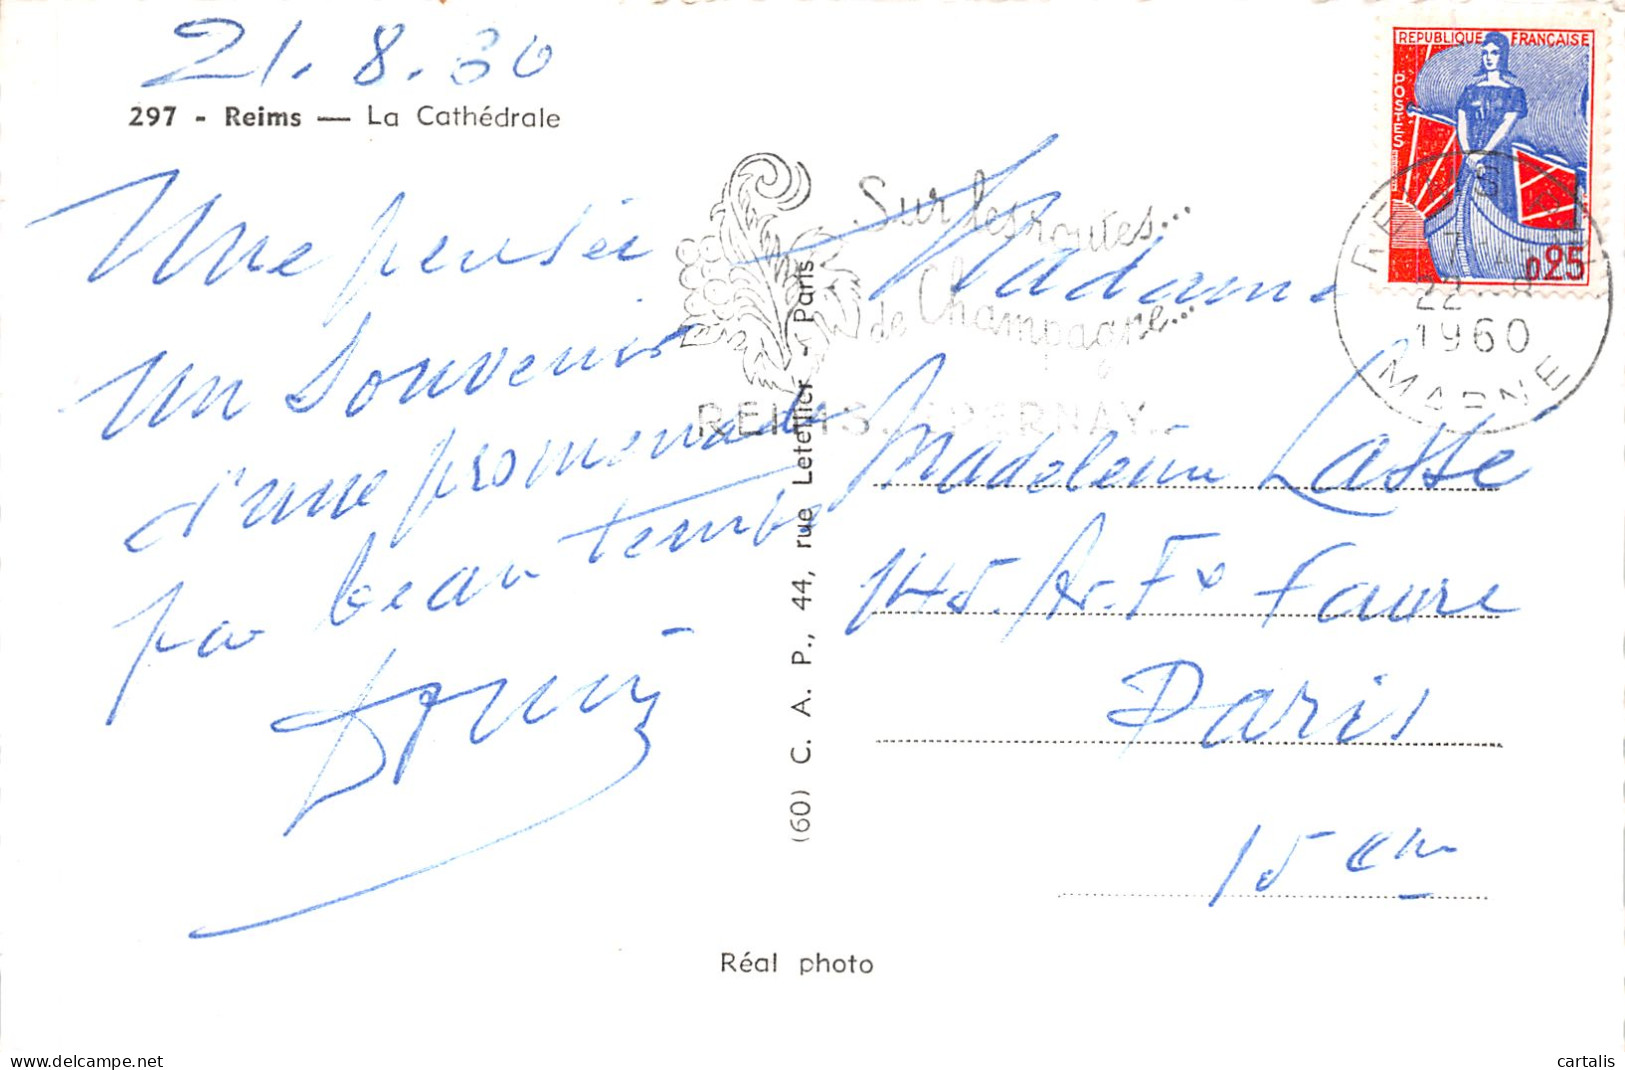 21.8.60
297 - Reims — La Cathédrale
Une pensée
un souvenir
d'une promenade
par beau temps
REPUBLIQUE FRANCAISE
POSTES
0,25
22 - 8
1960
MARNE
Sur les routes...
de Champagne...
REIMS. EPERNAY...
Madame
Madeleine Lasse
145. Av. Fx Faure
Paris
15 em
(60) C. A. P., 44, rue Letellier - Paris
Réal photo
delcampe.net
cartalis